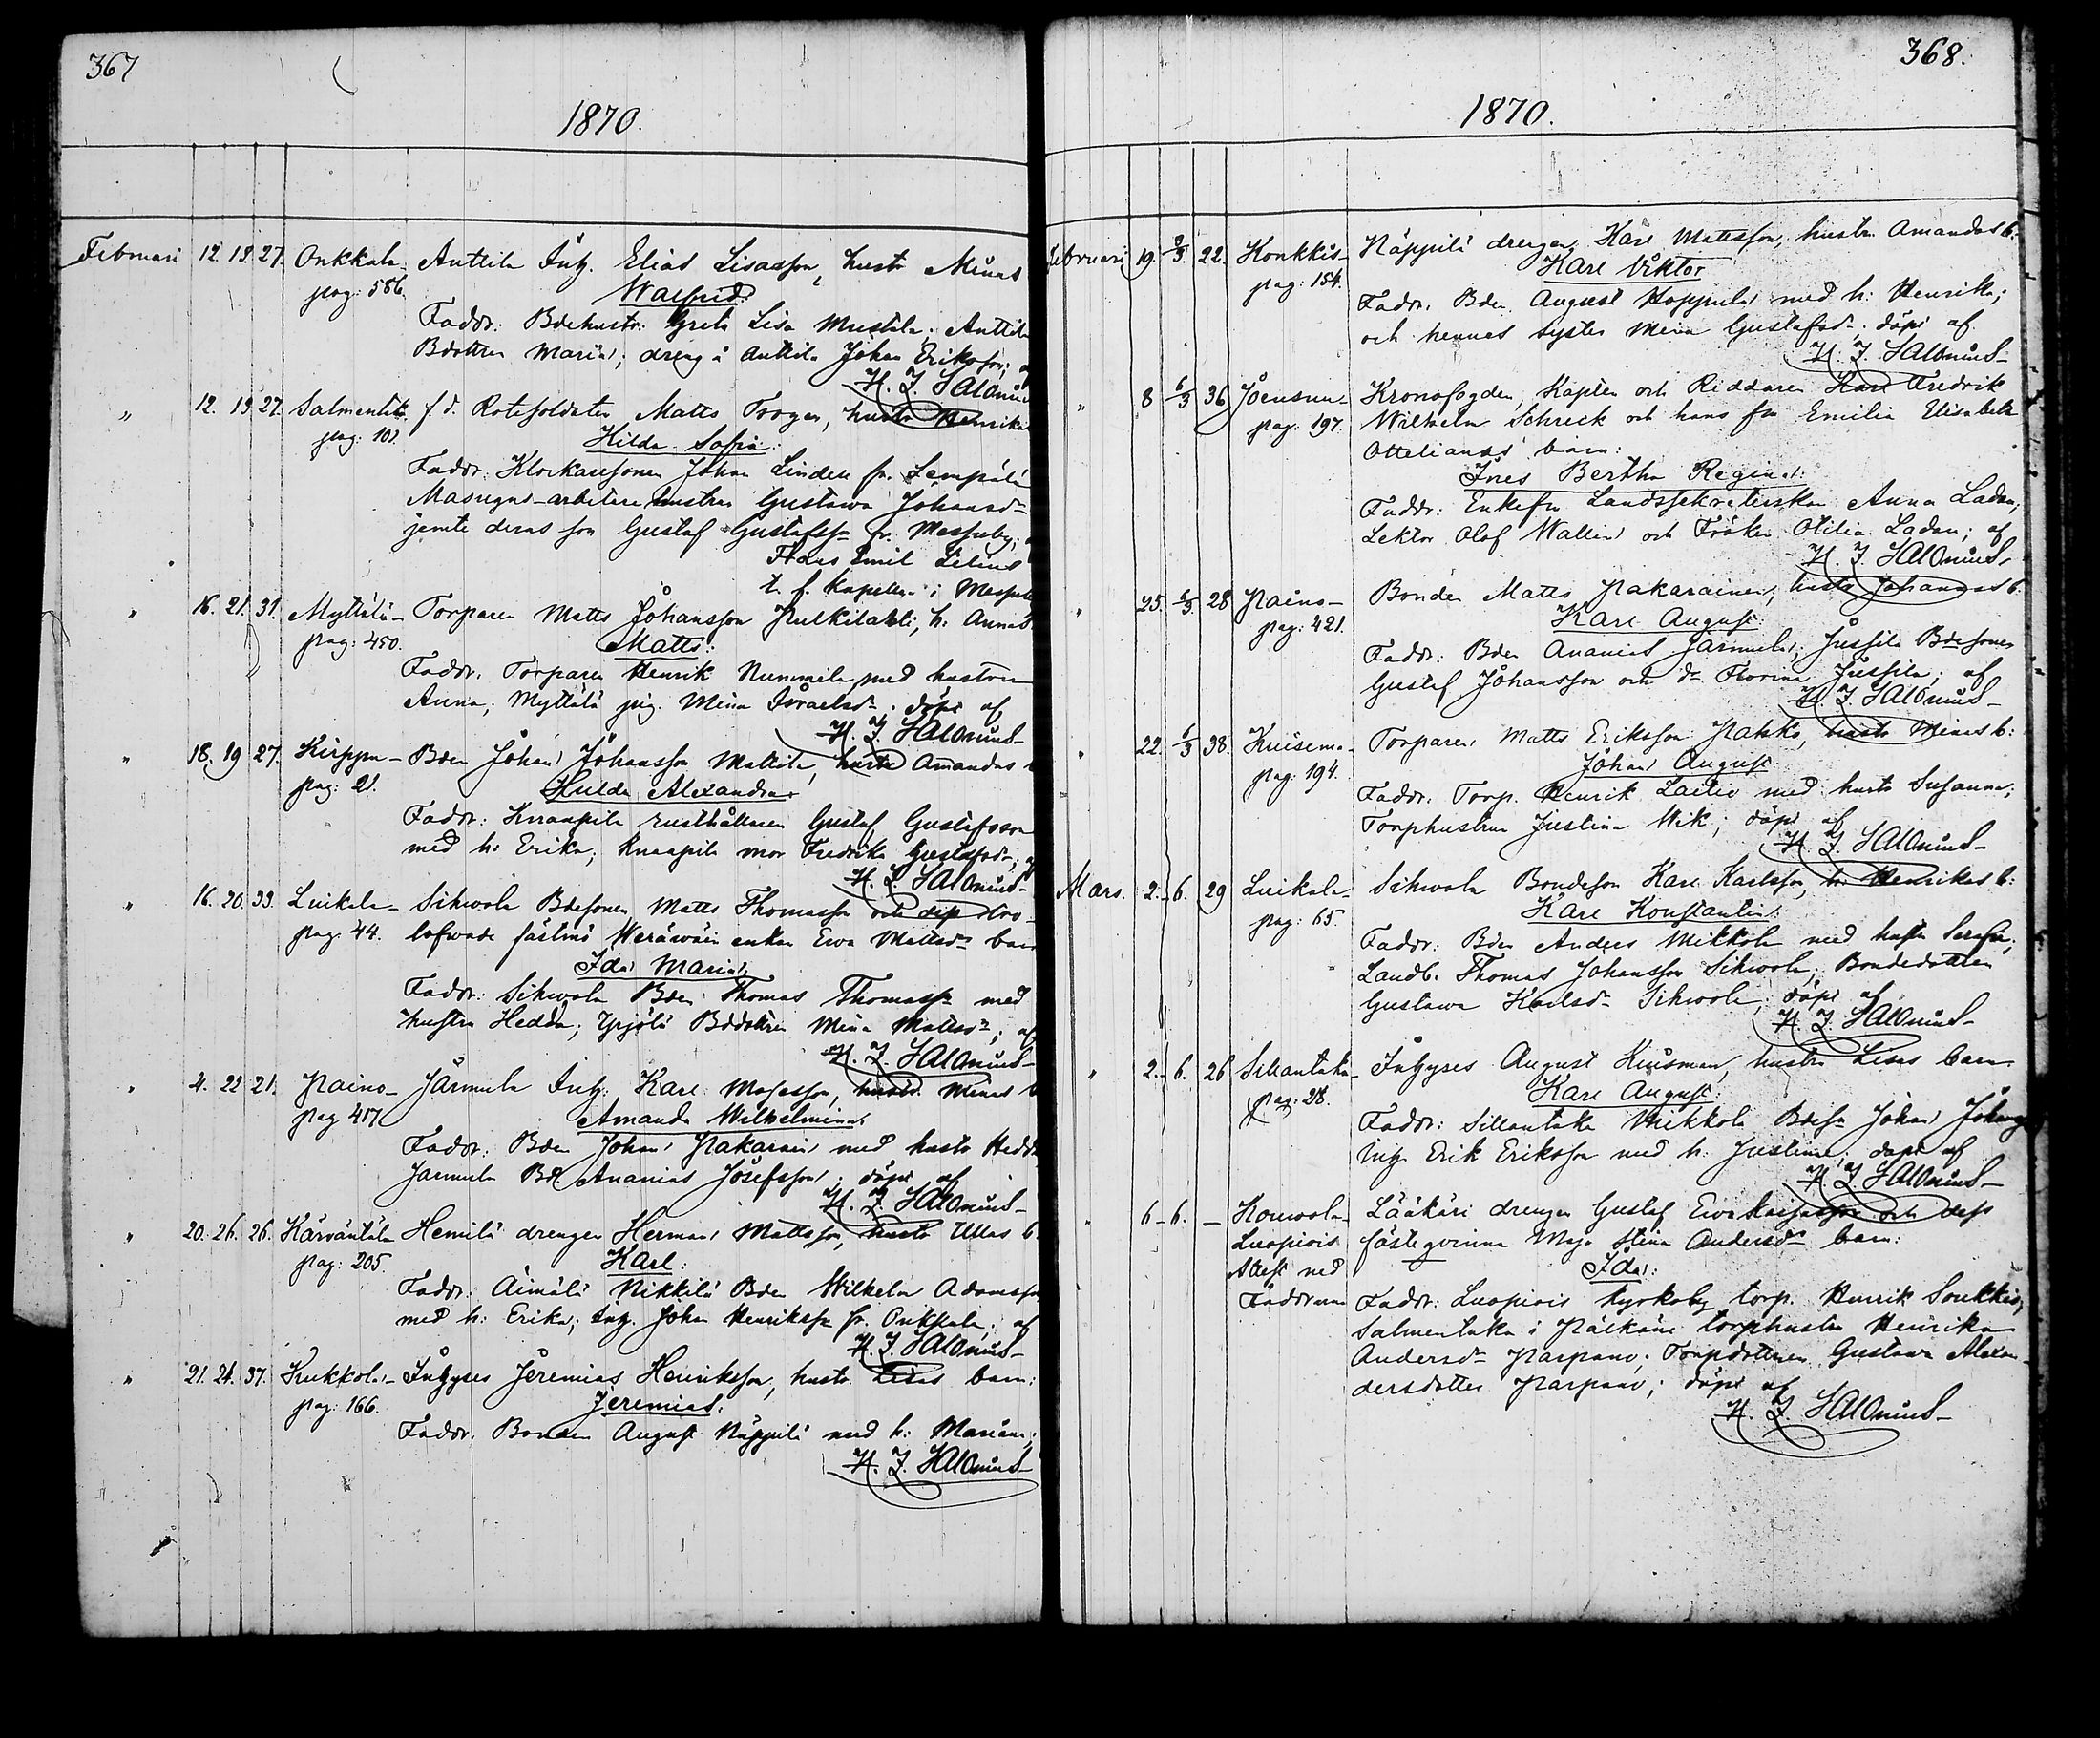 367
1870.
Februari 12. 19. 27. Onkkala- Anttila Inh. Elias Lisasson, hustr Minas
pag: 586. Walfrid:
Faddr: Bdehustr: Greta Lisa Mustala; Anttila
Bdottren Maria; dreng å Anttila Johan Eriksson; af
H. J. Salonius
" 12. 19. 27. Salmentak. f. d. Rotesoldaten Matts Trogen, hustr Henrikas
pag: 101. Hilda Sofia:
Faddr: Klockaresonen Johan Lindell fr. Lempälä
Masugns-arbetare hustrun Gustawa Johansd-
jemte deras son Gustaf Gustafss- fr. Messuby;
Frans Emil Lilius
t. f. Kapellan i Messuby
" 16. 21. 31. Myttälä- Torparen Matts Johansson Pulkilahti, h: Annas
pag: 450. Matts:
Faddr: Torparen Henrik Nummila med hustrun
Anna; Myttälä pig. Mina Israelsd-; döpt af
H. J. Salonius-
" 18. 19 27. Kirppu- Bden Johan Johansson Mattila, hustr Amandas b
pag: 21. Hulda Alexandra
Faddr: Knaapila rusthållaren Gustaf Gustafsson
med h: Erika; Knaapila mor Fredrika Gustafsd-; af
H. J. Salonius-
" 16. 20. 33. Luikala- Sihwola Bdesonen Matts Thomasson och dess tro-
pag: 44. lofwade fästmö Weräwäin enkan Ewa Mattsd- barn
Ida Maria:
Faddr: Sihwola Bden Thomas Thomass- med
hustru Hedda; Yrjölä Bddottren Mina Mattsd-; af
H. J. Salonius-
" 4. 22 21. Paino- Jarmula Inh. Karl Mosesson, hustr Minas b
pag 417 Amanda Wilhelmina
Faddr: Bden Johan Pakarain med hustr Hedda
Jarmula Bd. Ananias Josefsson; döpt af
H. J. Salonius-
" 20. 26. 26. Kärwäntäk. Hemilä drengen Herman Mattsson, hustr Ullas b.
pag: 205. Karl:
Faddr: Äimälä Nikkilä Bden Wilhelm Adamsson
med h: Erika; Inh. Johan Henrikss- fr. Onkkala; af
H. J. Salonius-
" 21. 26. 37. Kukkola- Inhyses Jeremias Henriksson, hustr Lisas barn:
pag: 166. Jeremias:
Faddr: Bonden August Näppilä med h: Maria;
H. J. Salonius-
368.
1870.
Februari 19. 2/3. 22. Konkkis- Näppilä drengen Karl Mattsson, hustr. Amandas b:
pag: 154. Karl Viktor
Faddr. Bden August Hoppula med h: Henrika;
och hennes syster Mina Gustafsd-; döpt af
H. J. Salonius-
" 8 6/3 36 Joensuu- Kronofogden, Kapten och Riddaren Karl Fredrik
pag: 197. Wilhelm Schreck och hans fru Emilia Elisabeth
Ottilianas barn:
Ines Bertha Regina:
Faddr: Enkefru Landssekreterskan Anna Ladau,
Lektor Olof Wallin och Fröken Otilia Ladau; af
H. J. Salonius-
" 25. 6/3 28 Paino- Bonden Matts Pakarainen, hustr Johannas b.
pag: 421. Karl August:
Faddr: Bden Ananias Jarmula; Jussila Bdesonen
Gustaf Johansson och d- Florina Jussila; af
H. J. Salonius-
" 22. 6/3 38. Kuisema- Torparen Matts Eriksson Pakko, hustr Minas b:
pag: 194. Johan August:
Faddr: Torp. Henrik Laitio med hustr Susanna;
Torphustrun Justina Wik; döpt af
H. J. Salonius-
Mars. 2. 6. 29 Luikala- Sihwola Bondeson Karl Karlsson, h: Henrikas b:
pag: 65. Karl Konstantin:
Faddr: Bden Anders Mikkola med hustr Serafia;
Landb. Thomas Johansson Sihwola, Bondedottren
Gustawa Karlsd- Sihwola; döpt af
H. J. Salonius-
" 2. 6. 26 Sillantaka- Inhyses August Kuusman, hustr Lisas barn
pag: 28. Karl August:
Faddr: Sillantaka Mikkola Bdes- Johan Johanss
Inh. Erik Eriksson med h: Justina; döpt af
H. J. Salonius-
" 6 - 6. - Kouwola- Lääkäri drengen Gustaf Ewa Kaisasson och dess
Luopiois fästeqvinna Maja Stina Andersd- barn:
Attest med Ida:
Faddrarne Faddr: Luopiois kyrkoby torp. Henrik Soukkio,
Salmentaka i Pälkäne torphustru Henrika
Andersd- Parpano; Torpdottren Gustawa Alexan-
dersdotter Parpano; döpt af
H. J. Salonius-